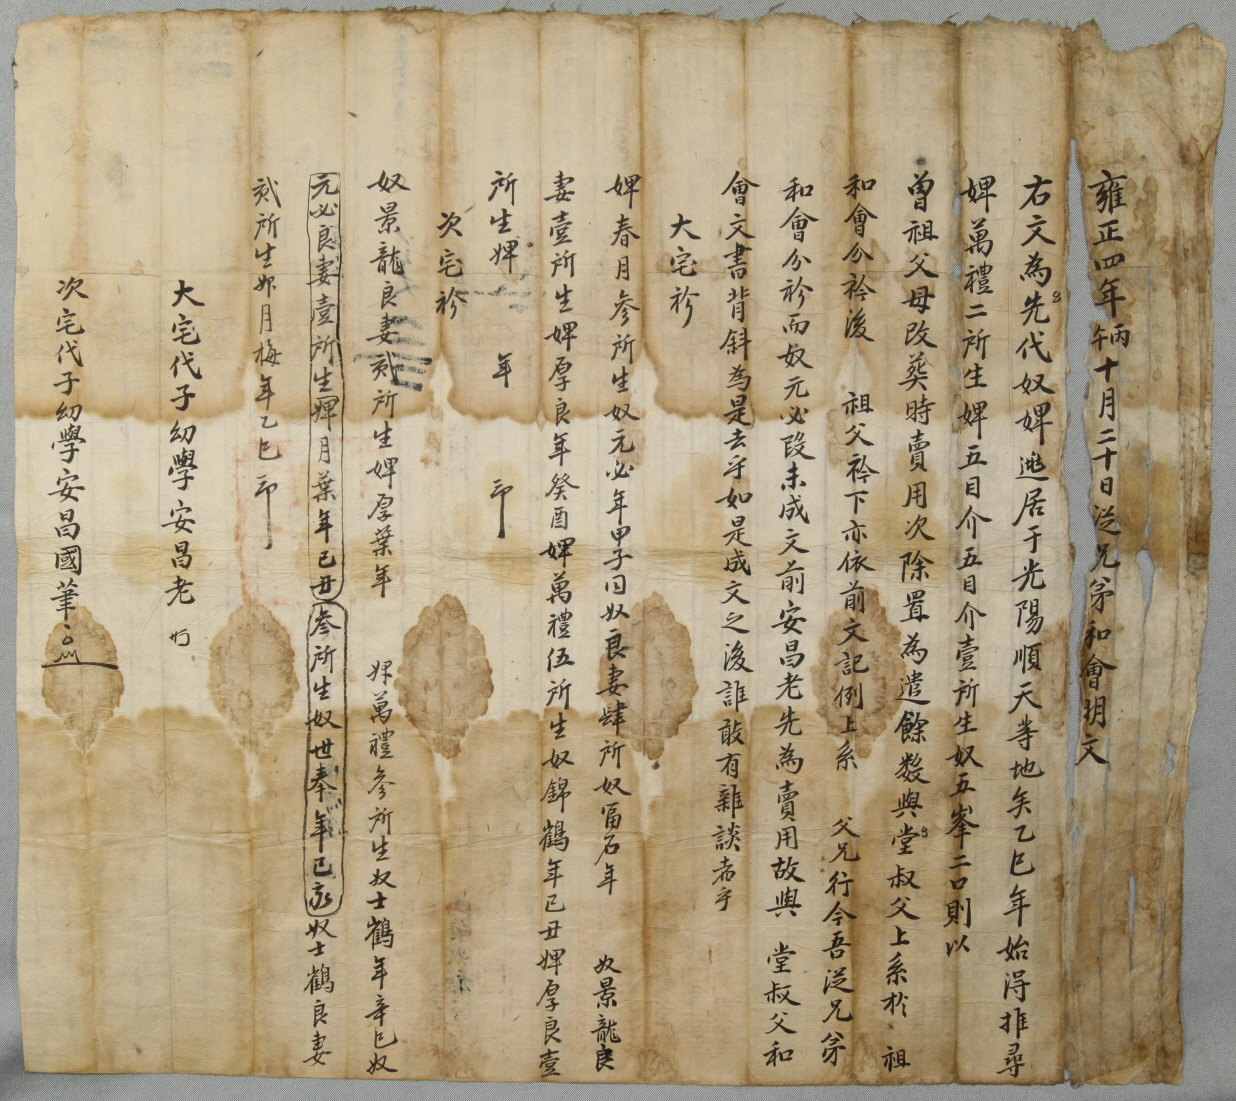 雍正四年丙午十月二十日從兄弟和會明文
右文為先代奴婢逃居于光陽順天等地矣乙巳年始得推尋
婢萬禮二所生婢五目介五目介壹所生奴五峯二口則以
曾祖父母改葬時賣用次除置為遣餘數與堂叔父上系於 祖
和會分衿後 祖父衿下亦依前文記例上系 父兄行今吾從兄弟
和會分衿而奴元必段未成文前安昌老先為賣用故與 堂叔父和
會文書背斜為是去乎如是成文之後誰敢有雜談者乎
大宅衿
婢春月參所生奴元必年甲子同奴良妻肆所奴畐石年 奴景龍良
妻壹所生婢厚良年癸酉婢萬禮伍所生奴錦鶴年己丑婢厚良壹
所生婢 年 印
次宅衿
奴景龍良妻貳所生婢厚葉年 婢萬禮參所生奴士鶴年辛巳奴
元必良妻壹所生婢月葉年己丑參所生奴世奉年己亥奴士鶴良妻
貳所生婢月梅年乙巳印
大宅代子幼學安昌老
次宅代子幼學安昌國筆